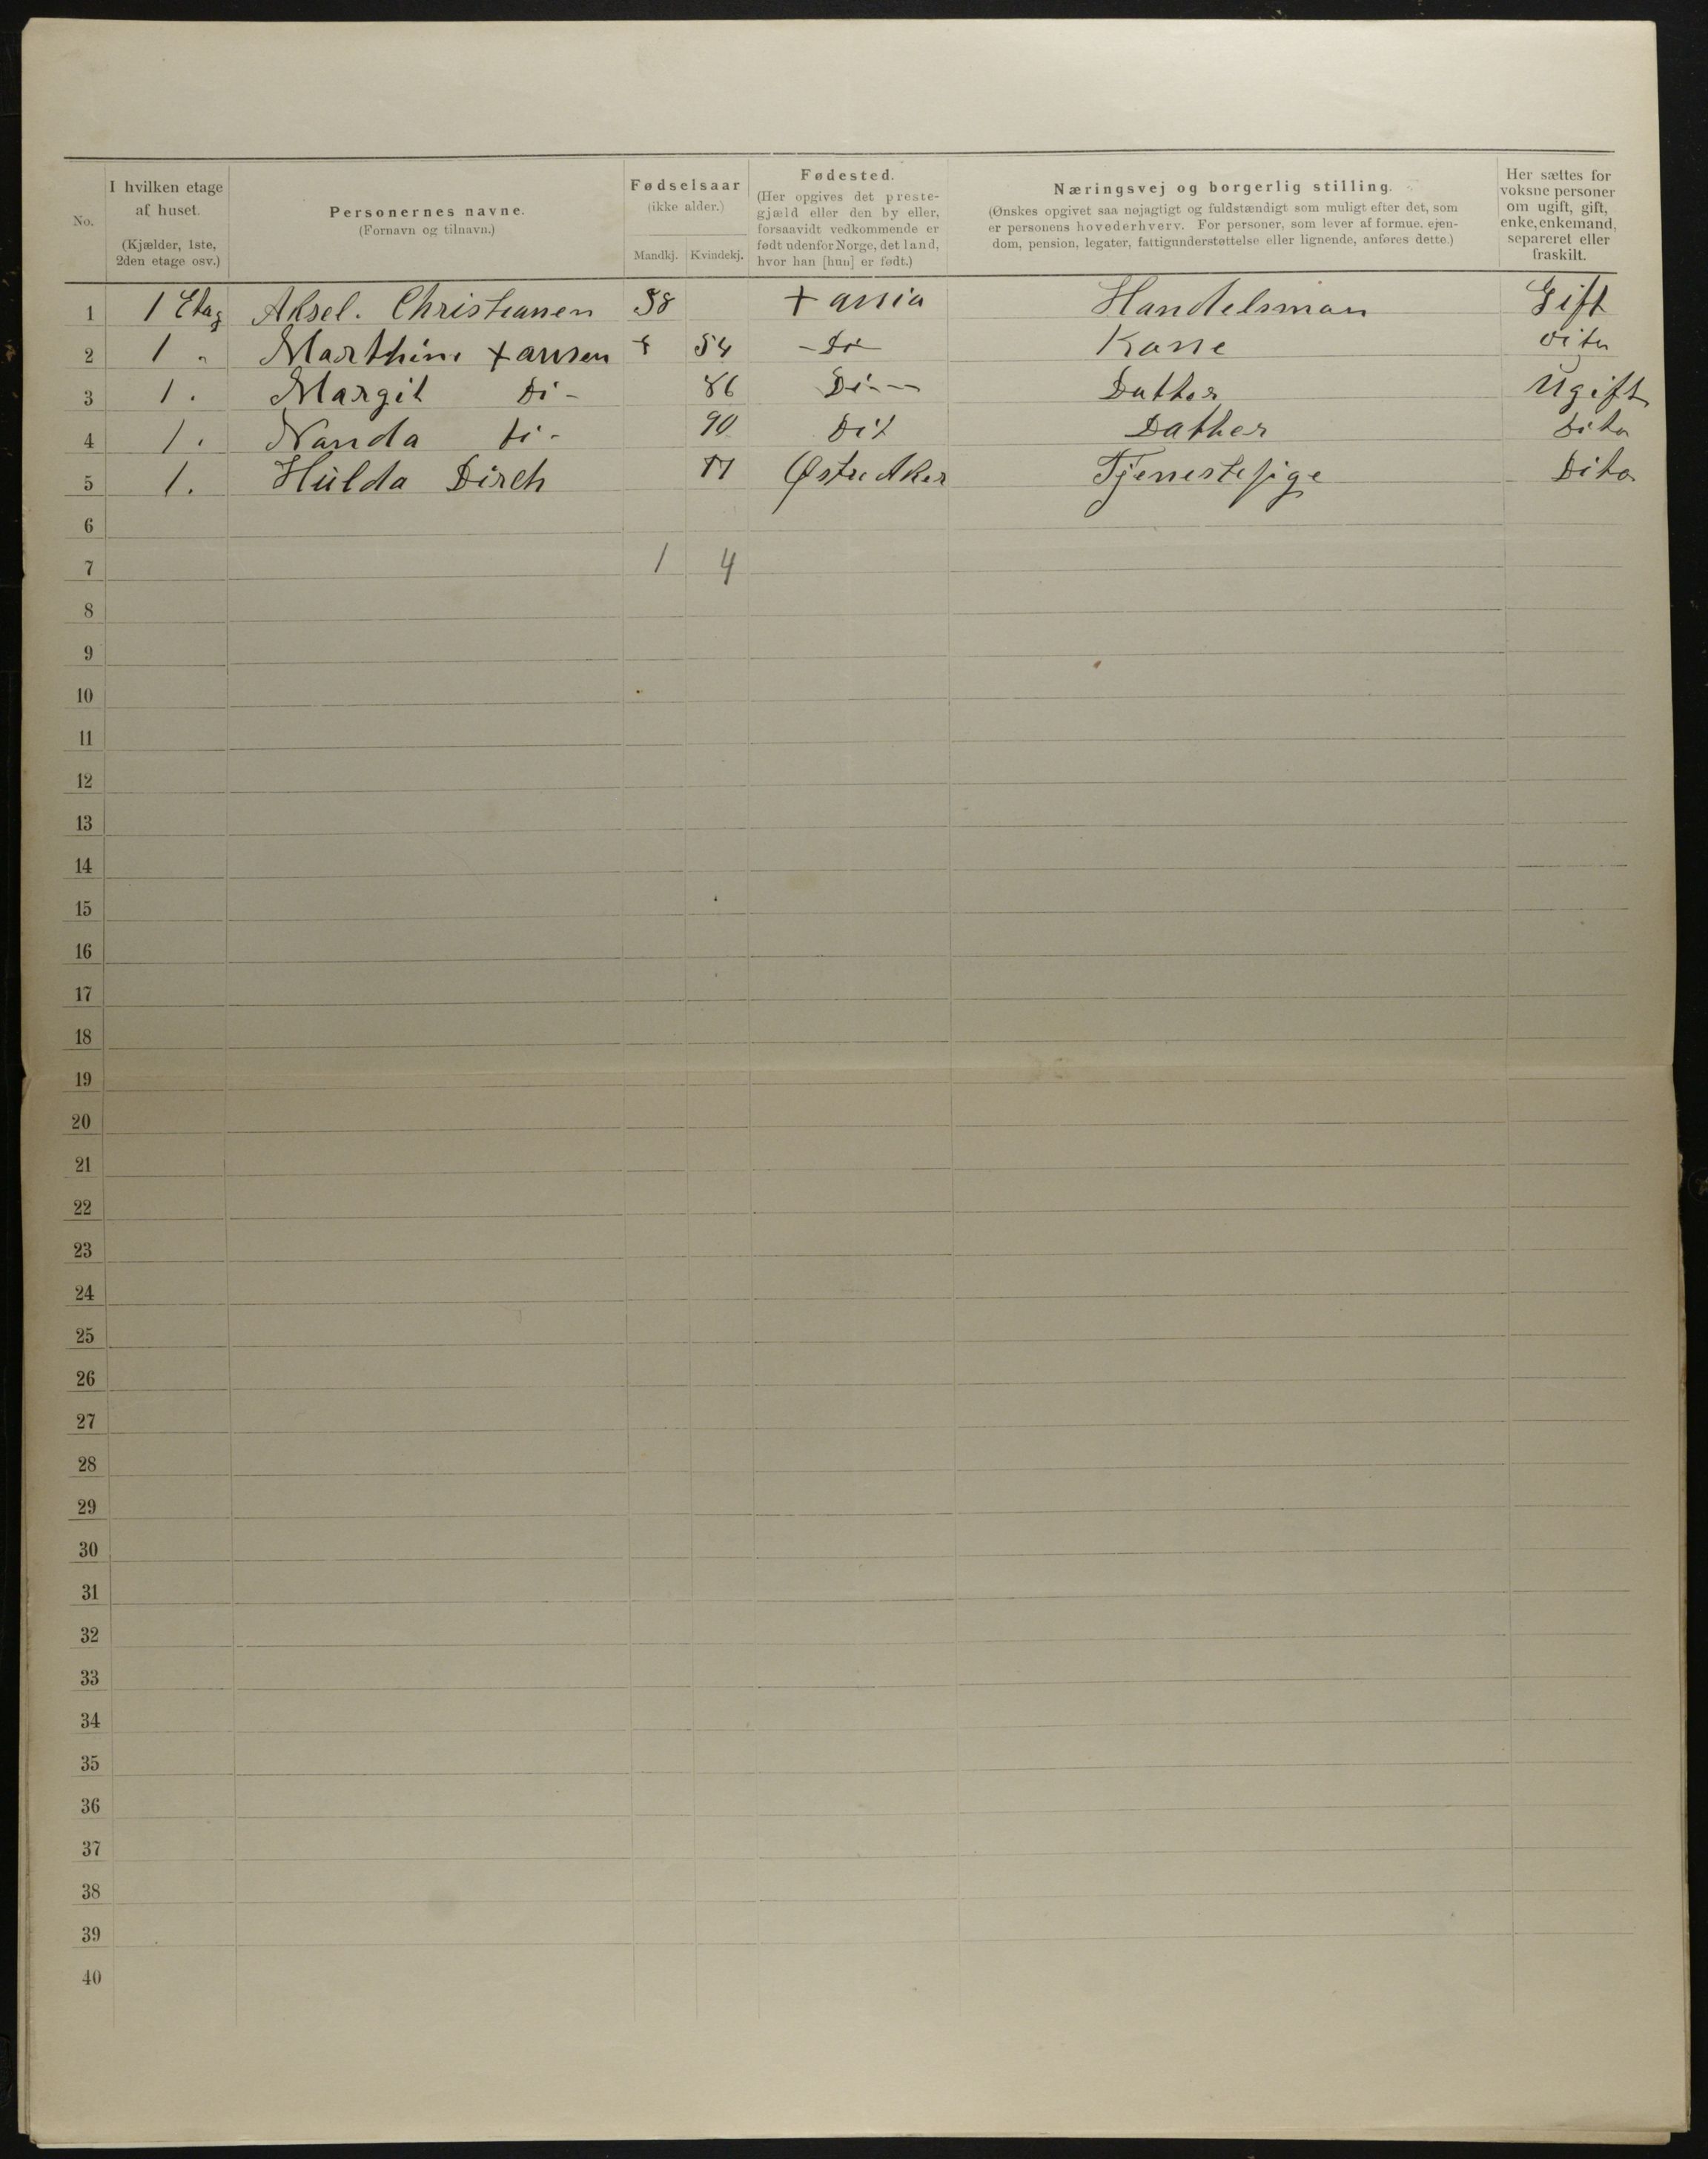 No. I hvilken etage af huset. (Kjælder, 1ste, 2den etage osv.) Personernes navne. (Fornavn og tilnavn.) Fødselsaar (ikke alder.) Mandkj. Kvindekj. Fødested. (Her opgives det prestegjæld eller den by eller, forsaavidt vedkommende er født udenfor Norge, det land, hvor han [hun] er født.) Næringsvej og borgerlig stilling. (Ønskes opgivet saa nøjagtigt og fuldstændigt som muligt efter det, som er personens hovederhverv. For personer, som lever af formue, ejendom, pension, legater, fattigunderstøttelse eller lignende, anføres dette.) Her sættes for voksne personer om ugift, gift, enke, enkemand, separeret eller fraskilt.
1 1 Etag Aksel. Christiansen 58 + ania Handelsman Gift
2 1 " Marthine + ansen 54 - Di - Kone dito
3 1. Margit Di - 86 Di - - Datter Ugift
4 1. Nanda Di - 90 Dit Dather Dito
5 1. Hulda Dirch 77 Østre Aker Tjenestepige Dito
6
7 1 4
8
9
10
11
12
13
14
15
16
17
18
19
20
21
22
23
24
25
26
27
28
29
30
31
32
33
34
35
36
37
38
39
40